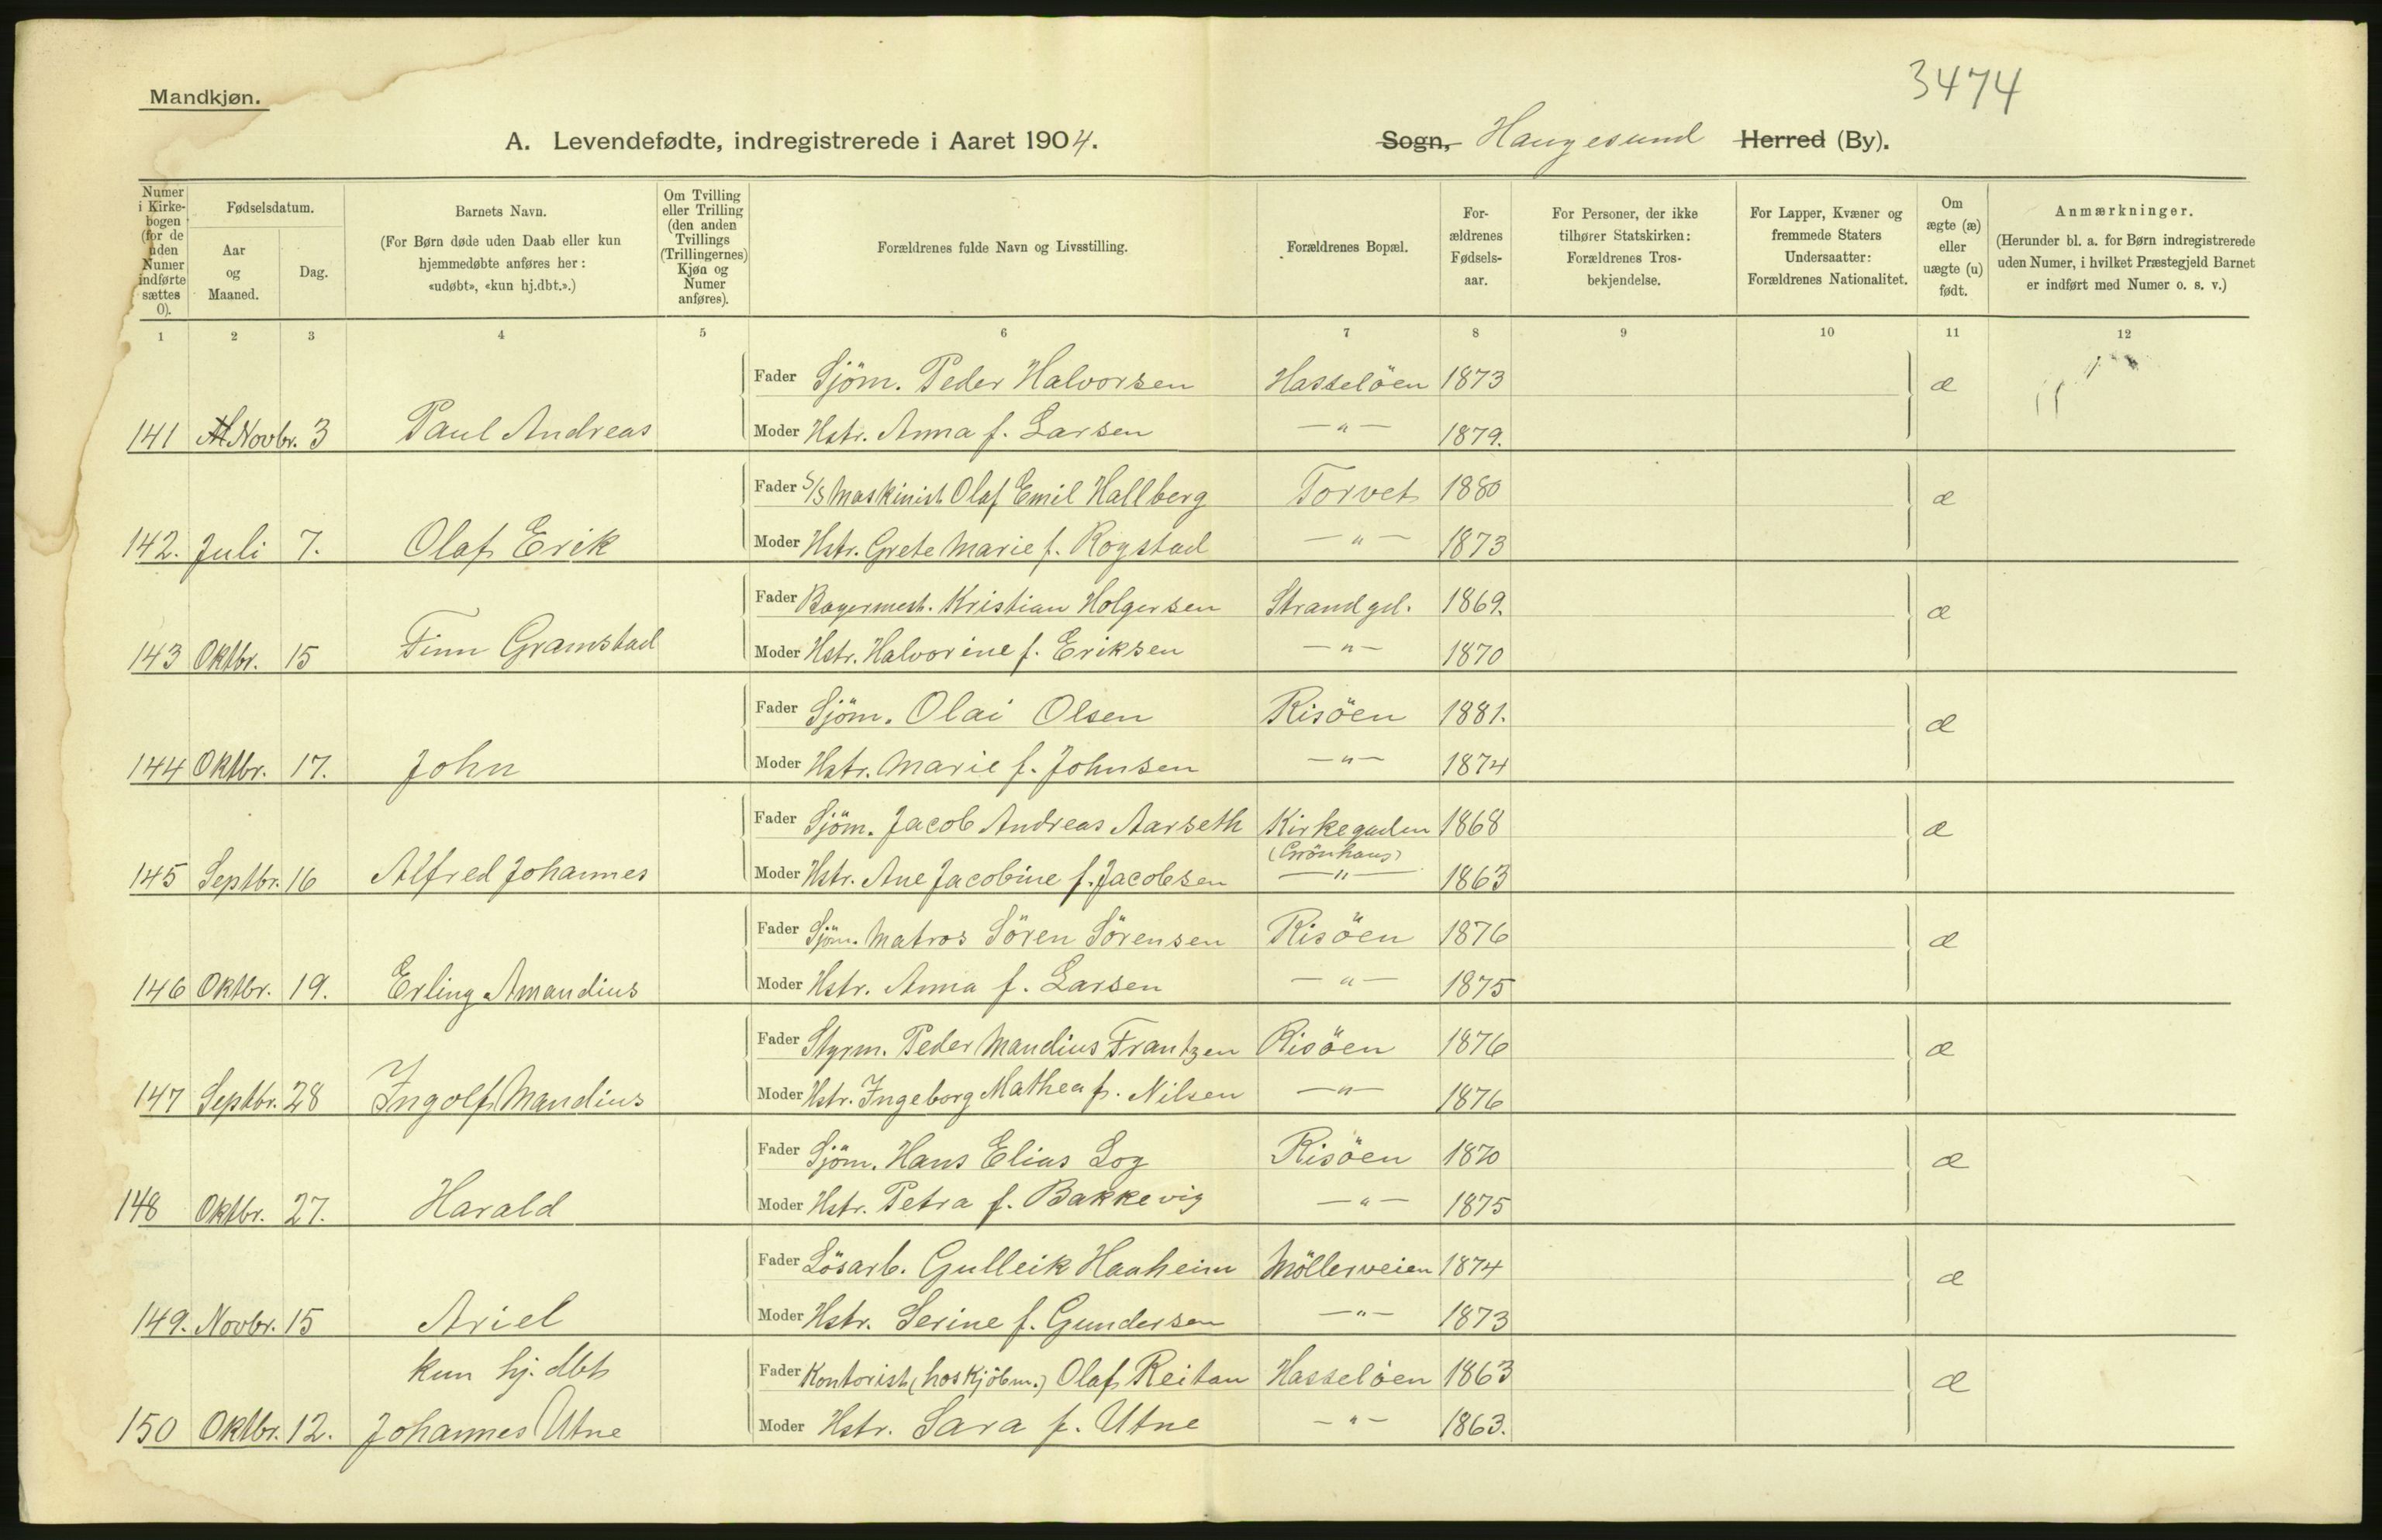 3474
Mandkjøn.
A. Levendefødte, indregistrerede i Aaret 1904. Sogn, Haugesund Herred (By).
Numer i Kirkebogen (for de uden Numer indførte sættes 0).
Fødselsdatum.
Aar og Maaned.
Dag.
Barnets Navn.
(For Børn døde uden Daab eller kun hjemmedøbte anføres her: «udøbt», «kun hj.dbt.».)
Om Tvilling eller Trilling (den anden Tvillings (Trillingernes) Kjøn og Numer anføres).
Forældrenes fulde Navn og Livsstilling.
Forældrenes Bopæl.
For-
ældrenes
Fødsels-
aar.
For Personer, der ikke
tilhører Statskirken:
Forældrenes Tros-
bekjendelse.
For Lapper, Kvæner og
fremmede Staters
Undersaatter:
Forældrenes Nationalitet.
Om
ægte (æ)
eller
uægte (u)
født.
Anmærkninger.
(Herunder bl. a. for Børn indregistrerede
uden Numer, i hvilket Præstegjeld Barnet
er indført med Numer o. s. v.)
1 2 3 4 5 6 7 8 9 10 11 12
Fader Sjöm. Peder Halvorsen Hasselöen 1873 æ
141 Novbr. 3 Paul Andreas Moder Hstr. Anna f. Larsen —"— 1879.
Fader S/S Maskinist Olaf Emil Hallberg Torvet 1880 æ
142. Juli 7. Olaf Erik Moder Hstr. Grete Marie f. Rogstad —"— 1873
Fader Bagermest. Kristian Holgersen Strandgd. 1869. æ
143 Oktbr. 15 Finn Gramstad Moder Hstr. Halvorine f. Eriksen —"— 1870
Fader Sjöm. Olai Olsen Risöen 1881. æ
144 Oktbr. 17. John Moder Hstr. Marie f. Johnsen —"— 1874
Fader Sjöm. Jacob Andreas Aarseth Kirkegaden 1868 æ
(Grönhaug)
145 Septbr. 16 Alfred Johannes Moder Hstr. Ane Jacobine f. Jacobsen —"— 1863
Fader Sjöm. Matros Sören Sörensen Risöen 1876 æ
146 Oktbr. 19. Erling Amandius Moder Hstr. Anna f. Larsen —"— 1875
Fader Styrm. Peder Mandius Frantzen Risöen 1876 æ
147 Septbr. 28 Ingolf Mandius Moder Hstr. Ingeborg Mathea f. Nilsen —"— 1876
Fader Sjöm. Hans Elias Log Risöen 1870 æ
148 Oktbr. 27. Harald Moder Hstr. Petra f. Bakkevig —"— 1875
Fader Lösarb. Gulleik Haaheim Möllerveien 1874 æ
149. Novbr. 15 Ariel Moder Hstr. Serine f. Gundersen —"— 1873
kun hj. dbt Fader Kontorist (hos Kjöbm.) Olaf Reitan Hasselöen 1863 æ
150 Oktbr. 12. Johannes Utne Moder Hstr. Sara f. Utne —"— 1863.